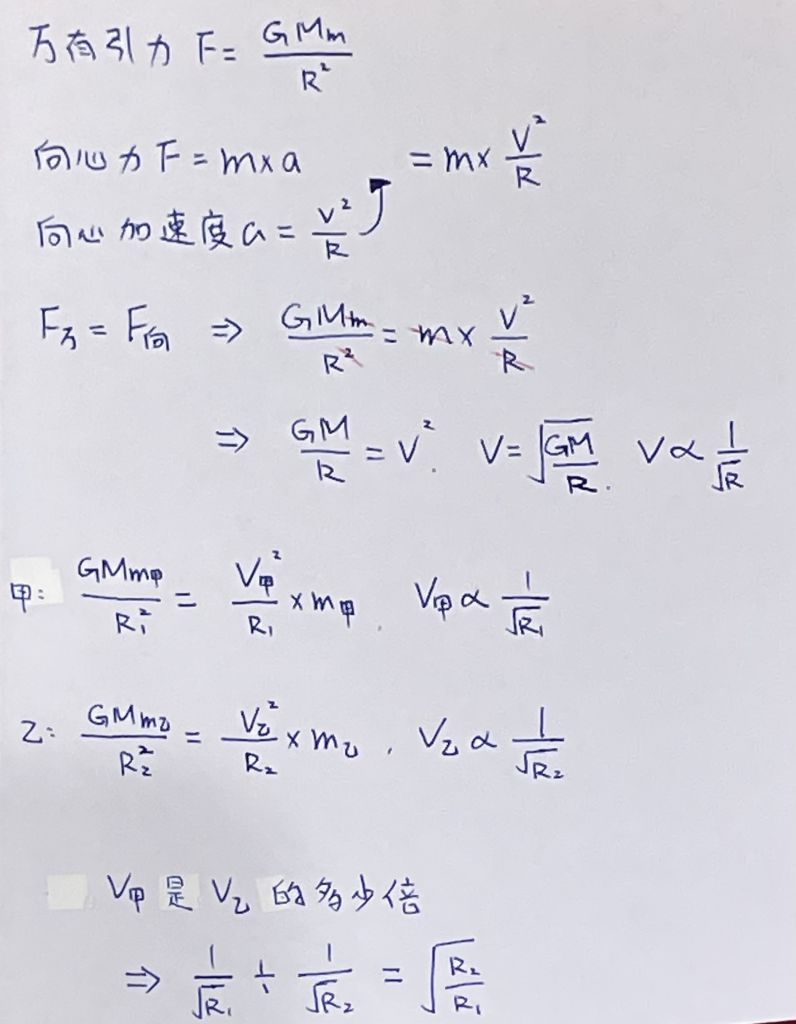 万有引力 F = GMm/R²
向心力 F = m×a = m× V²/R
向心加速度 a = V²/R
F万 = F向 ⇒ GMm/R² = m× V²/R
⇒ GM/R = V². V = √(GM/R). V ∝ 1/√R
甲: GMm甲/R₁² = V甲²/R₁ × m甲. V甲 ∝ 1/√R₁
乙: GMm乙/R₂² = V乙²/R₂ × m乙. V乙 ∝ 1/√R₂
V甲 是 V乙 的多少倍
⇒ 1/√R₁ ÷ 1/√R₂ = √(R₂/R₁)